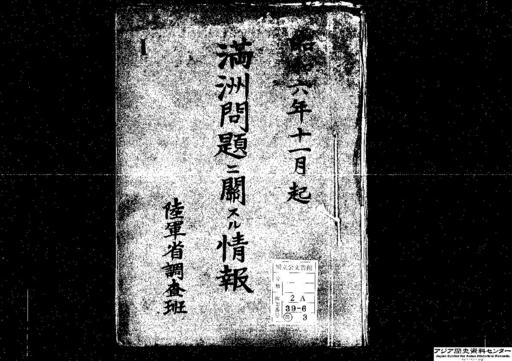 昭和六年十一月起
満洲問題ニ關スル情報
陸軍省調査班
国立公文書館
2A
39-6
3
アジア歴史資料センター
Japan Center for Asian Historical Records